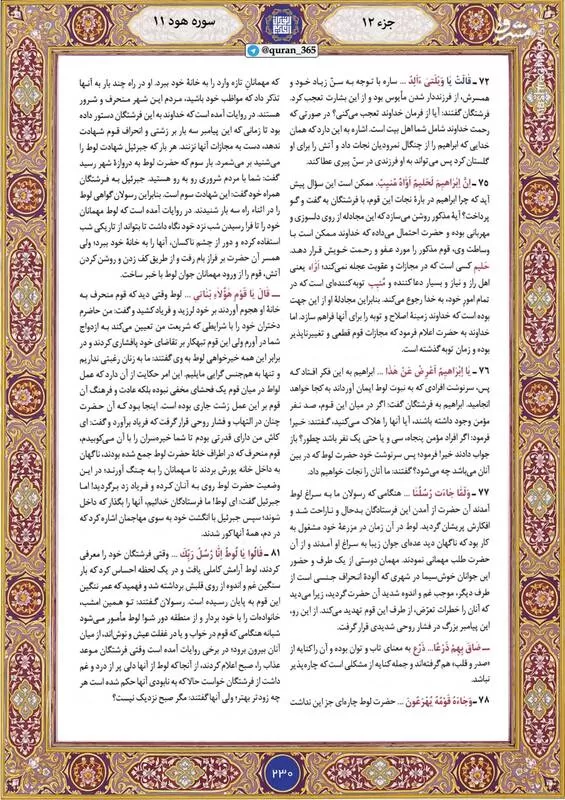 جزء ۱۲
سوره هود ۱۱
@quran_365
۷۲ ـ قَالَتْ يَا وَيْلَتَىٰ ءَأَلِدُ ... ساره با توجه به سنّ زیاد خود و
همسرش، از فرزنددار شدن مأیوس بود و از این بشارت تعجب کرد.
فرشتگان گفتند: آیا از فرمان خداوند تعجب می‌کنی؟ در صورتی که
رحمت خداوند شامل شما اهل بیت است. اشاره به این دارد که همان
خدایی که ابراهیم را از چنگال نمرودیان نجات داد و آتش را برای او
گلستان کرد پس می‌تواند به او فرزندی در سنّ پیری عطا کند.
۷۵ ـ إِنَّ إِبْرَاهِيمَ لَحَلِيمٌ أَوَّاهٌ مُنِيبٌ. ممکن است این سؤال پیش
آید که چرا ابراهیم در بارهٔ نجات این قوم، با فرشتگان به گفت و گو
پرداخت؟ آیهٔ مذکور روشن می‌سازد که این مجادله از روی دلسوزی و
مهربانی بوده و حضرت احتمال می‌داده که خداوند ممکن است با
وساطت وی، قوم مذکور را مورد عفو و رحمت خویش قرار دهد.
حلیم کسی است که در مجازات و عقوبت عجله نمی‌کند؛ أوّاه یعنی
اهل راز و نیاز و بسیار دعا کننده و مُنیب توبه کننده‌ای است که در
تمام امور خود، به خدا رجوع می‌کند. بنابراین مجادلهٔ او از این جهت
بوده است که خداوند زمینهٔ اصلاح و توبه را برای آنها فراهم سازد. اما
خداوند به حضرت اعلام فرمود که مجازات قوم قطعی و تغییرناپذیر
بوده و زمان توبه گذشته است.
۷۶ ـ يَا إِبْرَاهِيمُ أَعْرِضْ عَنْ هَٰذَا ... ابراهیم به این فکر افتاد که
پس، سرنوشت افرادی که به نبوت لوط ایمان آورداند به کجا خواهد
انجامید. ابراهیم به فرشتگان گفت: اگر در میان این قوم، صد نفر
مؤمن وجود داشته باشند، آیا آنها را هلاک می‌کنید، گفتند: خیر!
فرمود: اگر افراد مؤمن پنجاه، سی و یا حتی یک نفر باشد چطور؟ باز
جواب دادند خیر! فرمود؛ پس سرنوشت خود حضرت لوط که در بین
آنان می‌باشد چه می‌شود؟ گفتند: ما آنان را نجات خواهیم داد.
۷۷ ـ وَلَمَّا جَاءَت رُسُلُنَا ... هنگامی که رسولان ما به سراغ لوط
آمدند آن حضرت از آمدن این فرستادگان بدحال و ناراحت شد و
افکارش پریشان گردید. لوط در آن زمان در مزرعهٔ خود مشغول به
کار بود که ناگهان دید عده‌ای جوان زیبا به سراغ او آمدند و از آن
حضرت طلب مهمانی نمودند. مهمان دوستی از یک طرف و حضور
این جوانان خوش‌سیما در شهری که آلودهٔ انحراف جنسی است از
طرف دیگر، موجب غم و اندوه شدید آن حضرت گردید، زیرا می‌دید
که آنان را خطرات تعرّض، از طرف این قوم تهدید می‌کند. از این رو،
این پیامبر بزرگ در فشار روحی شدیدی قرار گرفت.
ـــ ضاقَ بِهِم ذَرْعًا... ذَرْع به معنای تاب و توان بوده و آن را کنایه از
«صدر و قلب» هم گرفته‌اند و جمله کنایه از مشکلی است که چاره‌پذیر
نباشد.
۷۸ ـ وَجَاءَهُ قَوْمُهُ يُهْرَعُونَ ... حضرت لوط چاره‌ای جز این نداشت
که مهمانان تازه وارد را به خانهٔ خود ببرد. او در راه چند بار به آنها
تذکر داد که مواظب خود باشید، مردم این شهر منحرف و شرور
هستند. در روایات آمده است که خداوند به این فرشتگان دستور داده
بود تا زمانی که این پیامبر سه بار بر زشتی و انحراف قوم شهادت
ندهد، دست به مجازات آنها نزنند. هر بار که جبرئیل شهادت لوط را
می‌شنید بر می‌شمرد. بار سوم که حضرت لوط به دروازهٔ شهر رسید
گفت: شما با مردم شروری رو به رو هستید. جبرئیل به فرشتگان
همراه خود گفت: این شهادت سوم است. بنابراین رسولان گواهی لوط
را در اثناء راه سه بار شنیدند. در روایات آمده است که لوط مهمانان
خود را تا فرا رسیدن شب نزد خود نگاه داشت تا بتواند از تاریکی شب
استفاده کرده و دور از چشم ناکسان، آنها را به خانهٔ خود ببرد؛ ولی
همسر آن حضرت بر فراز بام رفت و از طریق کف زدن و روشن کردن
آتش، قوم را از ورود مهمانان جوان لوط با خبر ساخت.
ـــ قَالَ يَا قَوْمِ هَٰؤُلَاءِ بَنَاتِي ... لوط وقتی دید که قوم منحرف به
خانهٔ او هجوم آوردند بر خود لرزید و فریاد کشید و گفت: من حاضرم
دختران خود را با شرایطی که شریعت من تعیین می‌کند به ازدواج
شما در آورم ولی این قوم تبهکار بر تقاضای خود پافشاری کردند و در
برابر این همه خیرخواهی لوط به وی گفتند: ما به زنان رغبتی نداریم
و تنها به هم‌جنس گرایی مایلیم. این امر حکایت از آن دارد که عمل
لواط در میان قوم یک فحشای مخفی نبوده بلکه عادت و فرهنگ آن
قوم بر این عمل زشت جاری بوده است. اینجا بود که آن حضرت
چنان در التهاب و فشار روحی قرار گرفت که فریاد برآورد و گفت: ای
کاش من دارای قدرتی بودم تا شما خیره‌سران را با آن می‌کوبیدم.
قوم منحرف که در اطراف خانهٔ حضرت لوط جمع شده بودند، ناگهان
به داخل خانه یورش بردند تا میهمانان را به چنگ آورند؛ در این
وضعیت حضرت لوط روی به آنان کرده و فریاد زد برگردید! اما
جبرئیل گفت: ای لوط! ما فرستادگان خدائیم، آنها را بگذار که داخل
شوند؛ سپس جبرئیل با انگشت خود به سوی مهاجمان اشاره کرد که
در دم، همهٔ آنها کور شدند.
۸۱ ـ قَالُوا يَا لُوطُ إِنَّا رُسُلُ رَبِّكَ ... وقتی فرشتگان خود را معرفی
کردند، لوط آرامش کاملی یافت و در یک لحظه احساس کرد که بار
سنگین غم و اندوه از روی قلبش برداشته شد و فهمید که عمر ننگین
این قوم به پایان رسیده است. رسولان گفتند: تو همین امشب،
خانواده‌ات را با خود بردار و از منطقه دور شو! لوط مأمور می‌شود
شبانه هنگامی که قوم در خواب و یا در غفلت عیش و نوش‌اند، از میان
آنان بیرون برود؛ در برخی روایات آمده است وقتی فرشتگان موعد
عذاب را، صبح اعلام کردند، از آنجا که لوط از آنها دلی پر از درد و غم
داشت از فرشتگان خواست حالا که به نابودی آنها حکم شده است هر
چه زودتر بهتر؛ ولی آنها گفتند: مگر صبح نزدیک نیست؟
۲۳۰